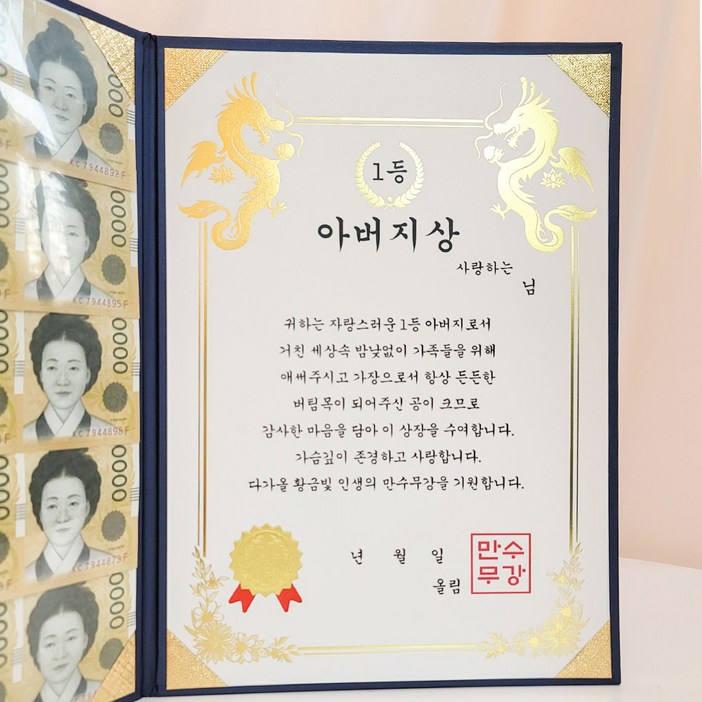 0000
KC7944892F
0000
KC7944895F
0000
KC7944898F
0000
0000
1등
아버지상
사랑하는
님
귀하는 자랑스러운 1등 아버지로서
거친 세상속 밤낮없이 가족들을 위해
애써주시고 가장으로서 항상 든든한
버팀목이 되어주신 공이 크므로
감사한 마음을 담아 이 상장을 수여합니다.
가슴깊이 존경하고 사랑합니다.
다가올 황금빛 인생의 만수무강을 기원합니다.
년 월 일
올림
만수
무강